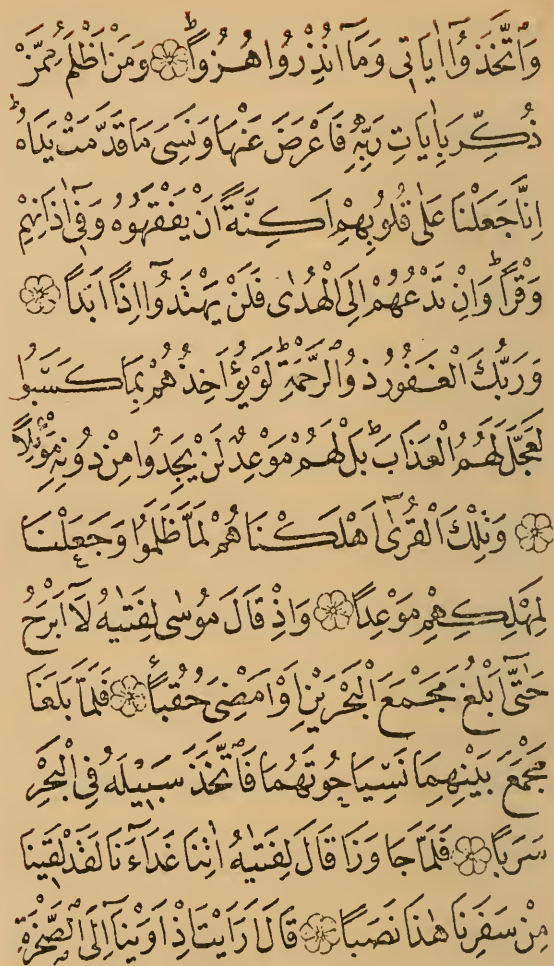 وَاتَّخَذُٓوا اٰيَاتٖى وَمَٓا اُنْذِرُوا هُزُوًاۜ ۞ وَمَنْ اَظْلَمُ مِمَّنْ
ذُكِّرَ بِاٰيَاتِ رَبِّهٖ فَاَعْرَضَ عَنْهَا وَنَسِىَ مَا قَدَّمَتْ يَدَاهُۜ
اِنَّا جَعَلْنَا عَلٰى قُلُوبِهِمْ اَكِنَّةً اَنْ يَفْقَهُوهُ وَفٖٓى اٰذَانِهِمْ
وَقْرًاۜ وَاِنْ تَدْعُهُمْ اِلَى الْهُدٰى فَلَنْ يَهْتَدُٓوا اِذًا اَبَدًا ۞
وَرَبُّكَ الْغَفُورُ ذُو الرَّحْمَةِۜ لَوْ يُؤَاخِذُهُمْ بِمَا كَسَبُوا
لَعَجَّلَ لَهُمُ الْعَذَابَۜ بَلْ لَهُمْ مَوْعِدٌ لَنْ يَجِدُوا مِنْ دُونِهٖ مَوْئِلًا
۞ وَتِلْكَ الْقُرٰٓى اَهْلَكْنَاهُمْ لَمَّا ظَلَمُوا وَجَعَلْنَا
لِمَهْلِكِهِمْ مَوْعِدًا ۞ وَاِذْ قَالَ مُوسٰى لِفَتٰيهُ لَٓا اَبْرَحُ
حَتّٰٓى اَبْلُغَ مَجْمَعَ الْبَحْرَيْنِ اَوْ اَمْضِىَ حُقُبًا ۞ فَلَمَّا بَلَغَا
مَجْمَعَ بَيْنِهِمَا نَسِيَا حُوتَهُمَا فَاتَّخَذَ سَبٖيلَهُ فِى الْبَحْرِ
سَرَبًا ۞ فَلَمَّا جَاوَزَا قَالَ لِفَتٰيهُ اٰتِنَا غَدَٓاءَنَا لَقَدْ لَقٖينَا
مِنْ سَفَرِنَا هٰذَا نَصَبًا ۞ قَالَ اَرَاَيْتَ اِذْ اَوَيْنَٓا اِلَى الصَّخْرَةِ